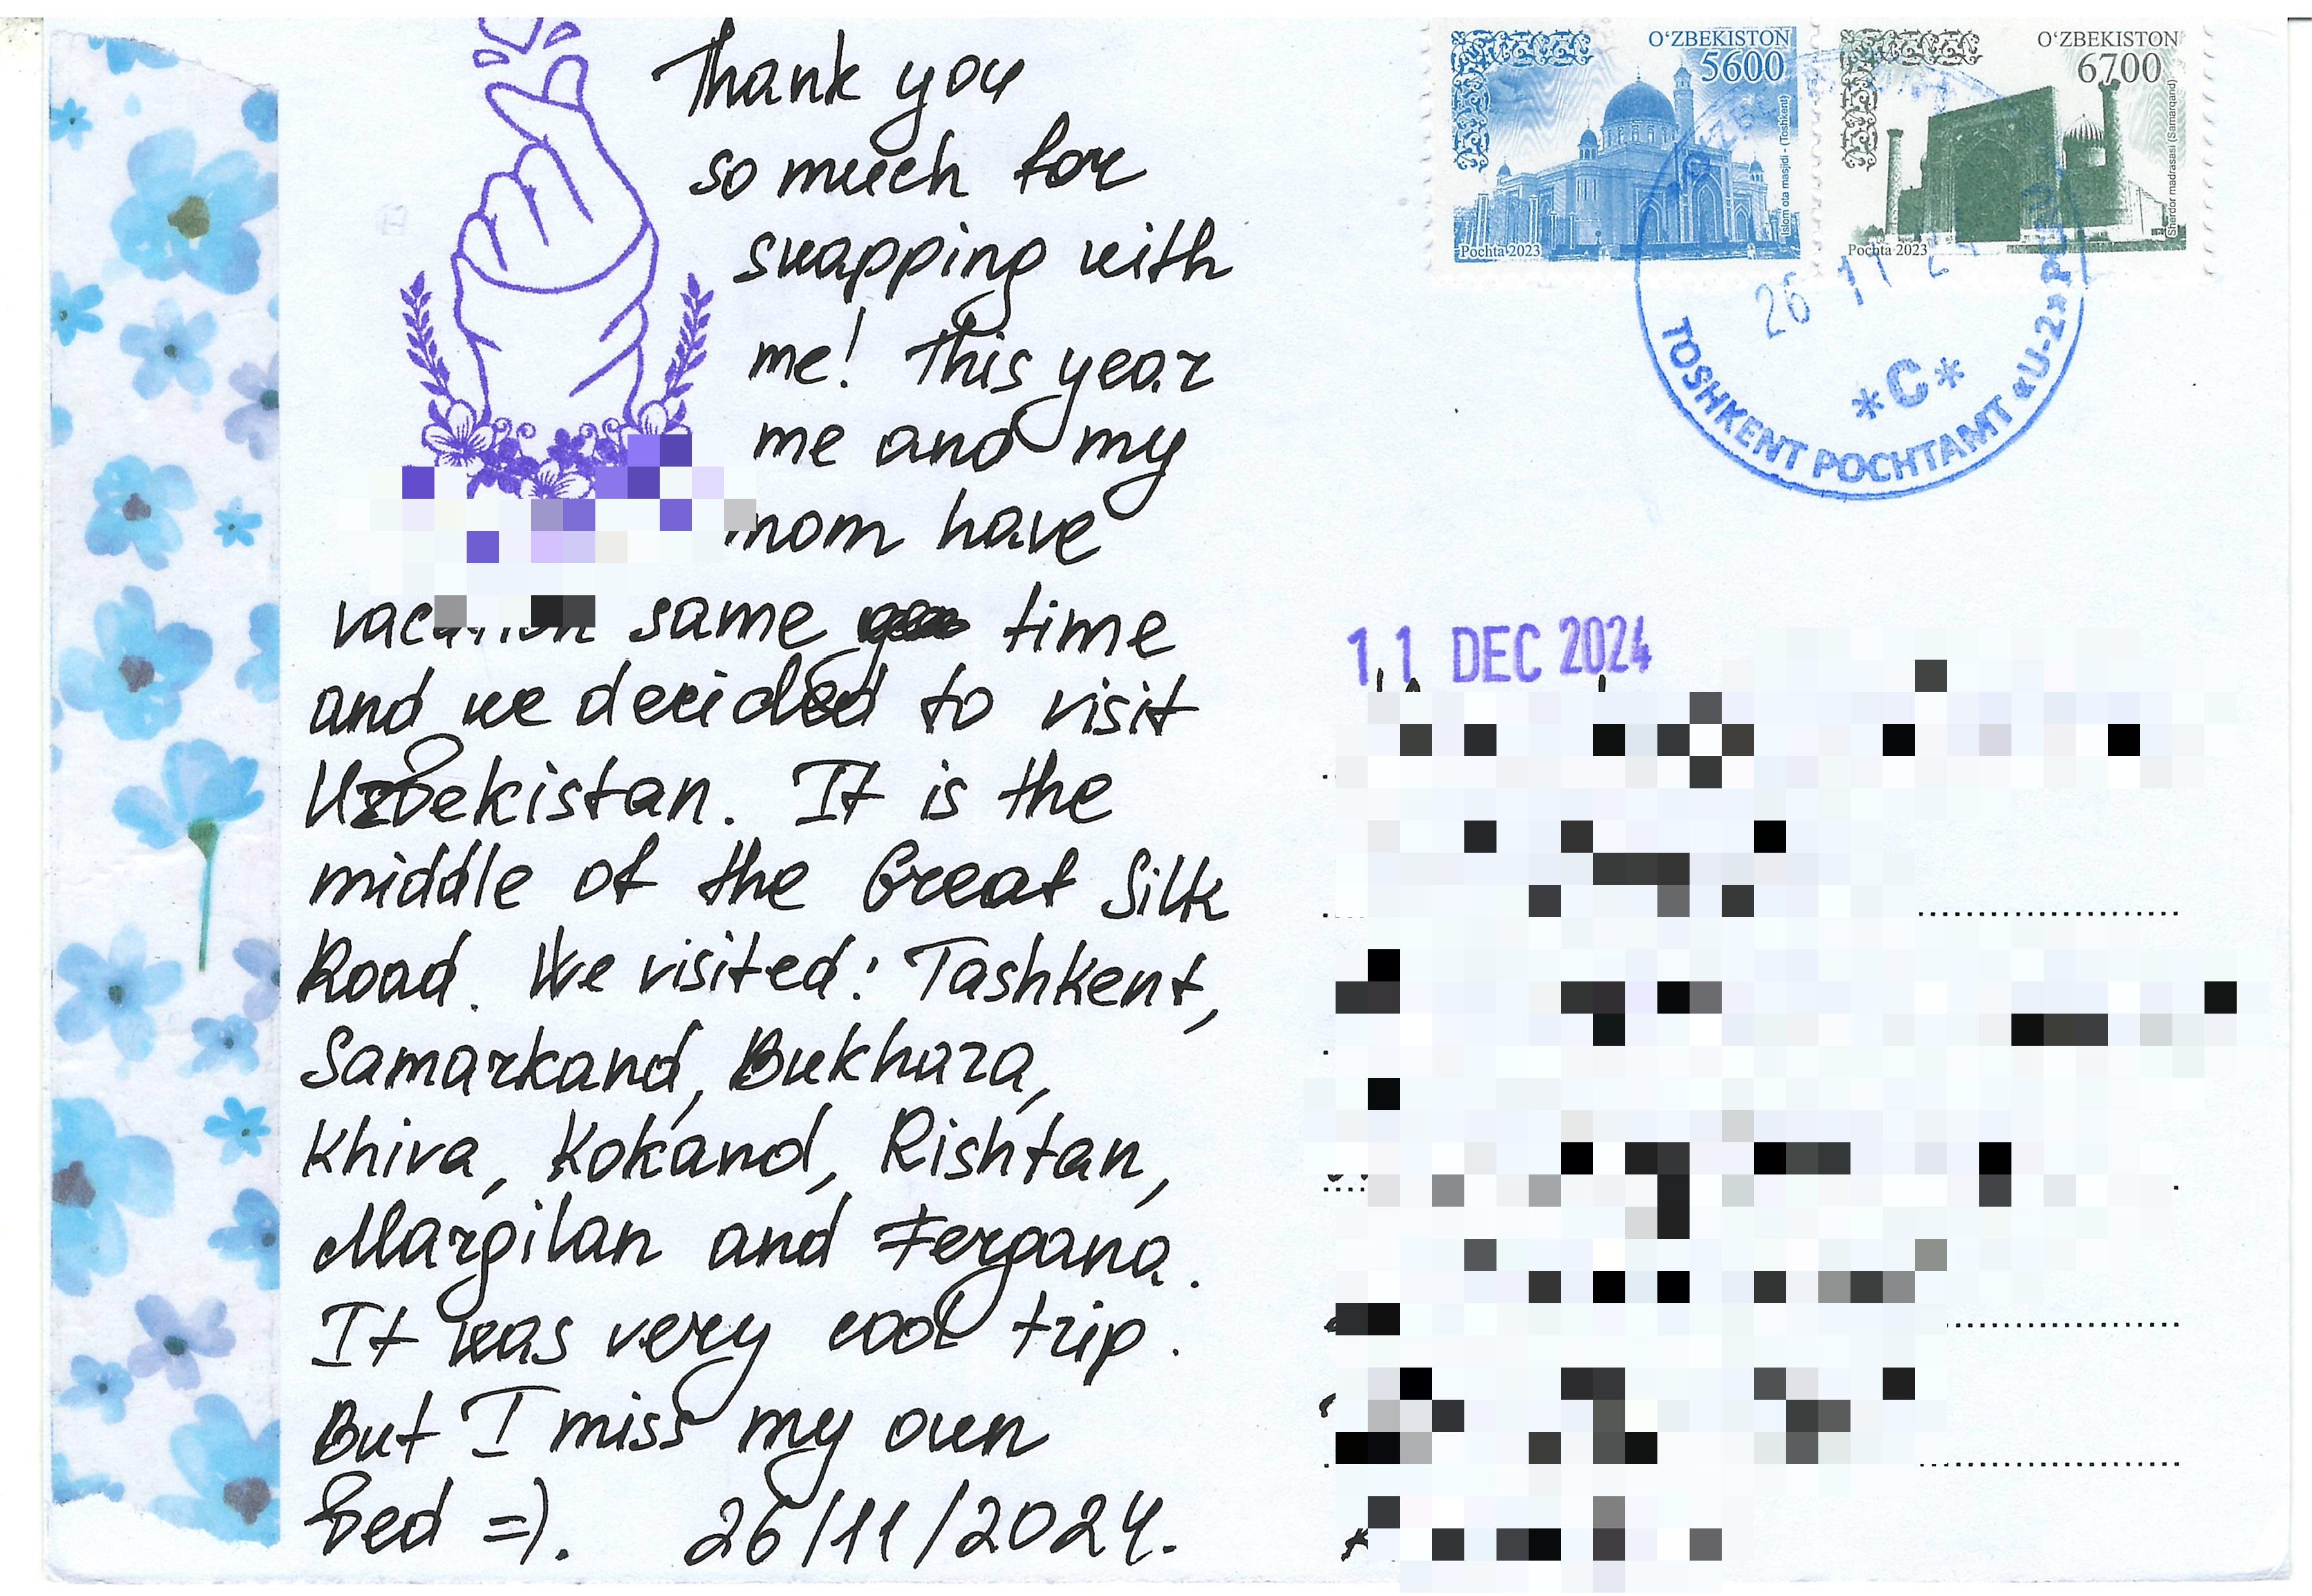 Thank you
so much for
swapping with
me! This year
me and my
mom have
vacation same time
and we decided to visit
Uzbekistan. It is the
middle of the Great Silk
Road. We visited: Tashkent,
Samarkand, Bukhara,
Khiva, Kokand, Rishtan,
Margilan and Fergana.
It was very cool trip.
But I miss my own
bed =). 26/11/2024.
O‘ZBEKISTON
5600
Islom ota masjidi - (Toshkent)
Pochta 2023
O‘ZBEKISTON
6700
Sherdor madrasasi (Samarqand)
Pochta 2023
26 11
*C*
TOSHKENT POCHTAMT «U-2»
11 DEC 2024